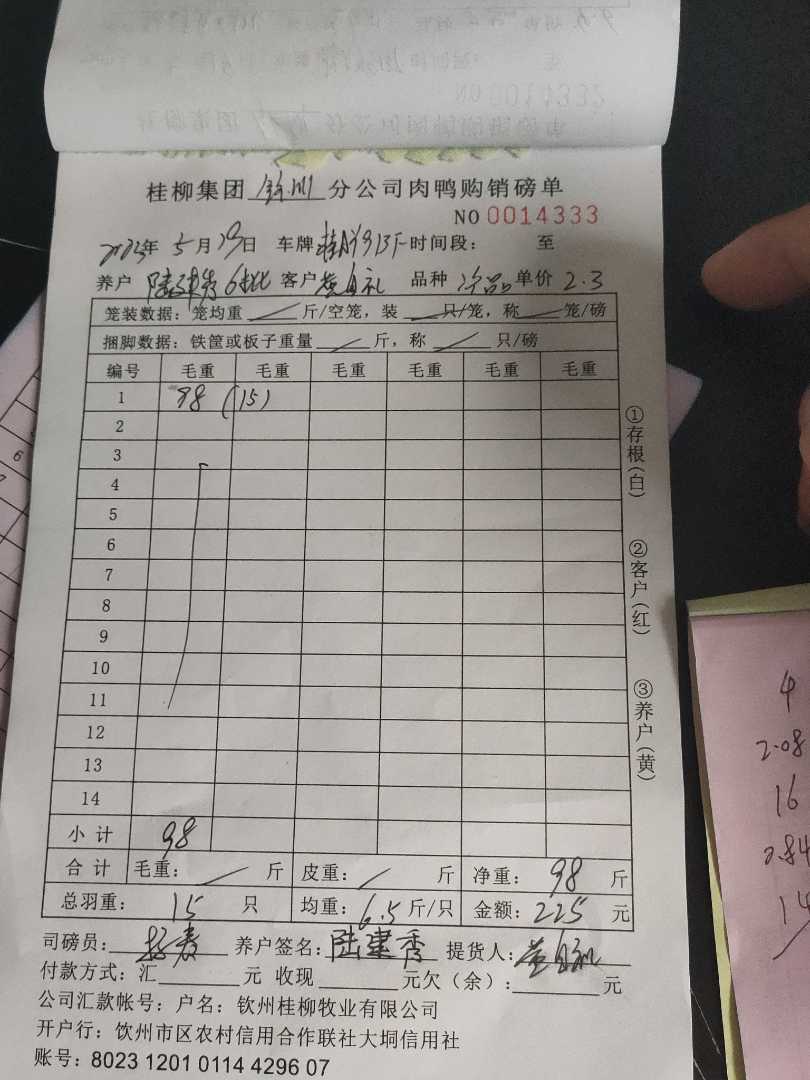 桂柳集团 钦州 分公司肉鸭购销磅单
NO 0014333
2023年 5月29日 车牌 时间段: 至
养户 陆建秀 6批 客户 黄自礼 品种 次品 单价 2.3
笼装数据: 笼均重 / 斤/空笼, 装 / 只/笼, 称 / 笼/磅
捆脚数据: 铁筐或板子重量 / 斤, 称 / 只/磅
编号 毛重 毛重 毛重 毛重 毛重 毛重
1 98 (15)
2
3
4
5
6
7
8
9
10
11
12
13
14
小计 98
合计 毛重: / 斤 皮重: / 斤 净重: 98 斤
总羽重: 15 只 均重: 6.5 斤/只 金额: 225 元
司磅员: 养户签名: 陆建秀 提货人: 黄自礼
付款方式: 汇 元 收现 元欠(余): 元
公司汇款帐号: 户名: 钦州桂柳牧业有限公司
开户行: 钦州市区农村信用合作联社大垌信用社
账号: 8023 1201 0114 4296 07
①存根(白)
②客户(红)
③养户(黄)
4
2.08
16
2.84
14
6
7